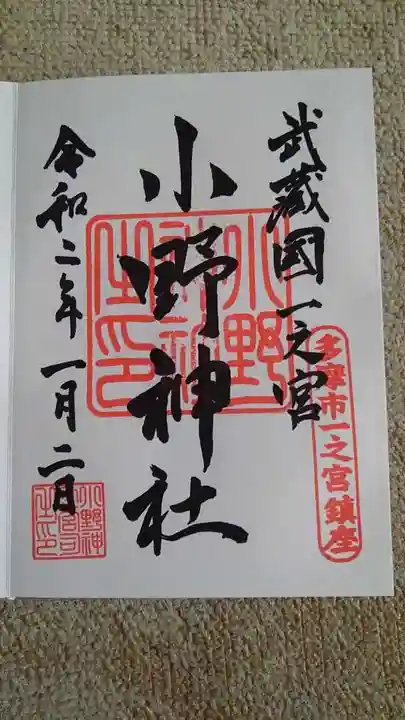 武蔵國一之宮
多摩市一之宮鎮座
小野神社
小野神社之印
令和二年一月二日